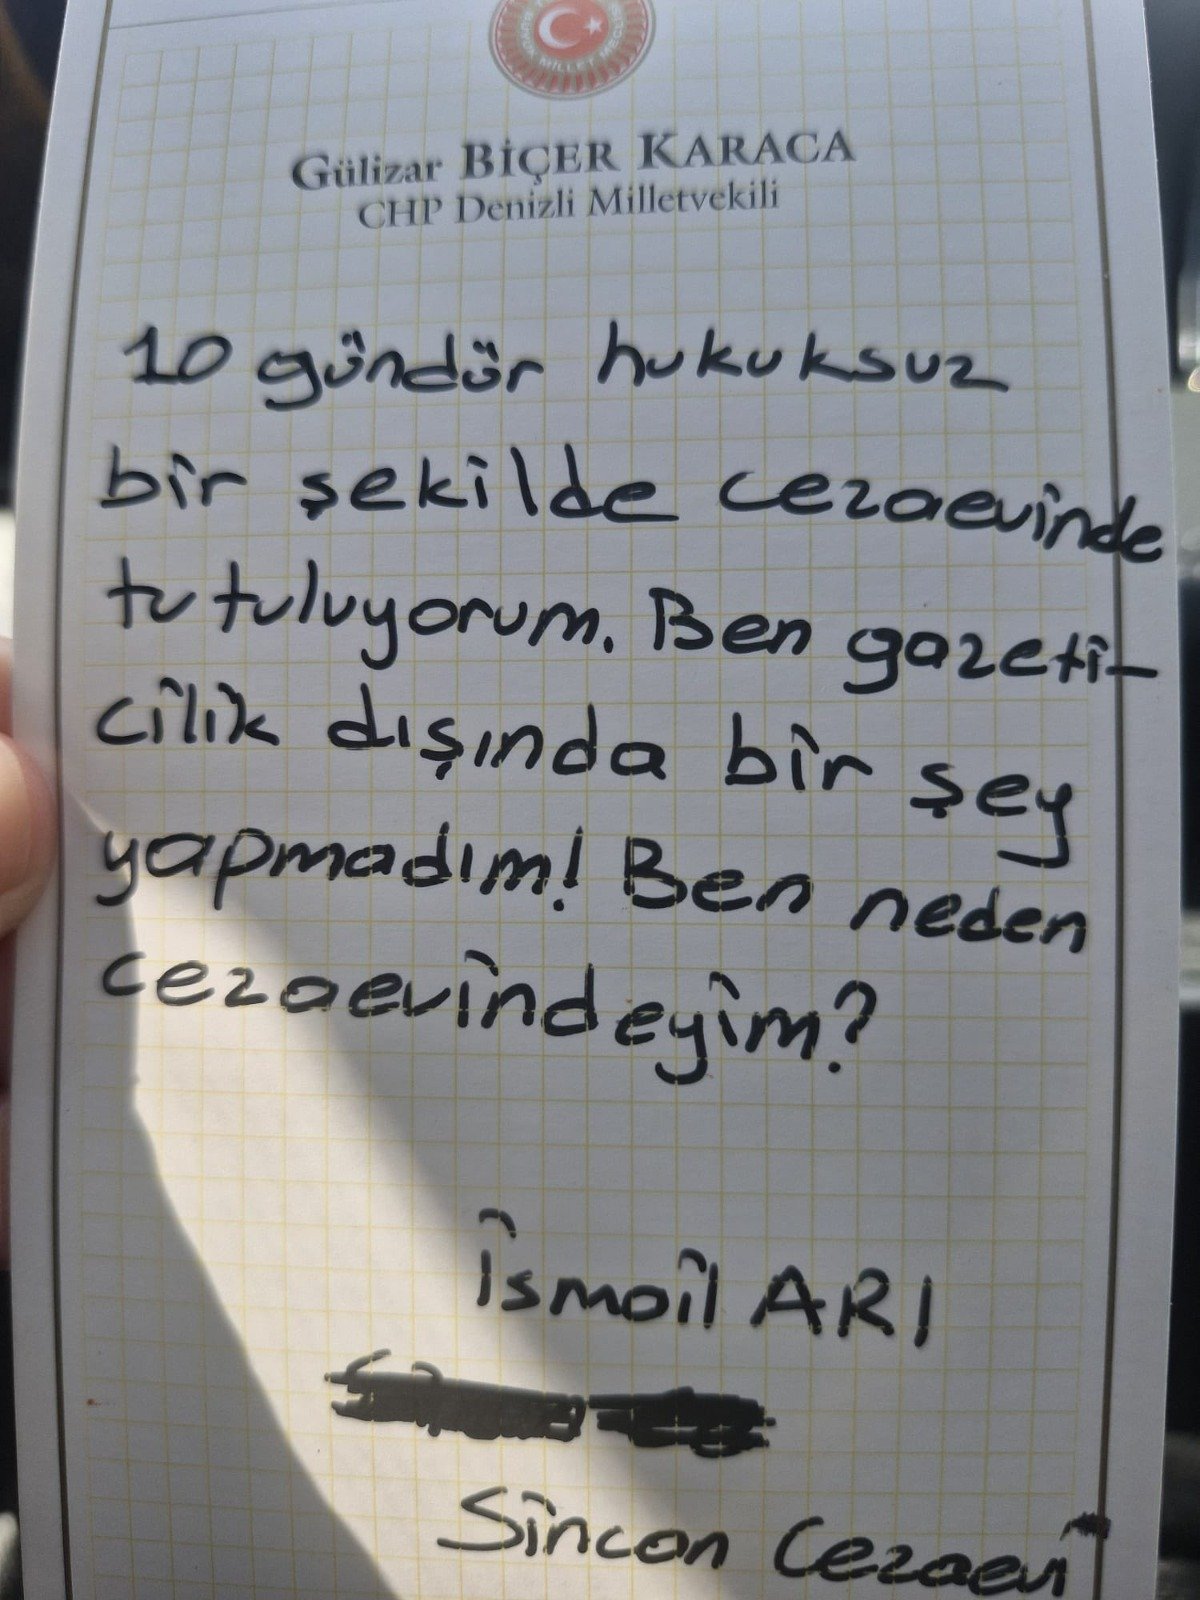 MİLLET MECLİSİ
Gülizar BİÇER KARACA
CHP Denizli Milletvekili
10 gündür hukuksuz
bir şekilde cezaevinde
tutuluyorum. Ben gazeti-
cilik dışında bir şey
yapmadım! Ben neden
cezaevindeyim?
İsmail ARI
Sincan Cezaevi